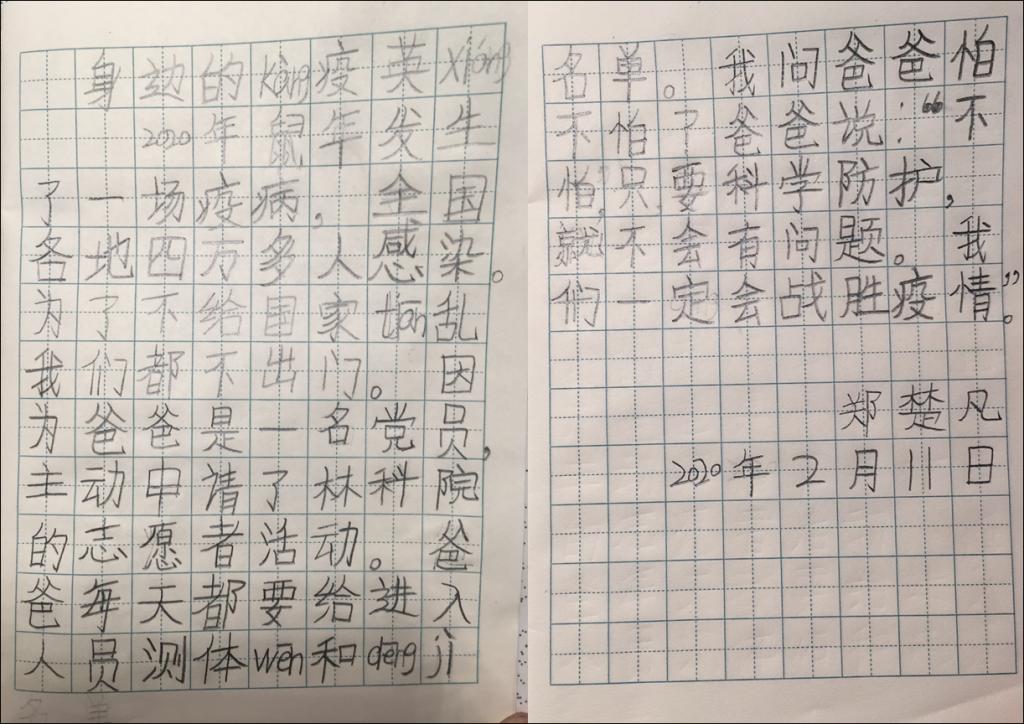 身边的kàng疫英xióng
2020年鼠年发生
了一场疫病，全国
各地四方多人感染。
为了不给国家tiān乱
我们都不出门。因
为爸爸是一名党员，
主动中请了林科院
的志愿者活动。爸
爸每天都要给进入
人员测体wēn和dēng jì
名单。我问爸爸怕
不怕？爸爸说：“不
怕，只要科学防护，
就不会有问题。我
们一定会战胜疫情。”
郑楚凡
2020年2月11日